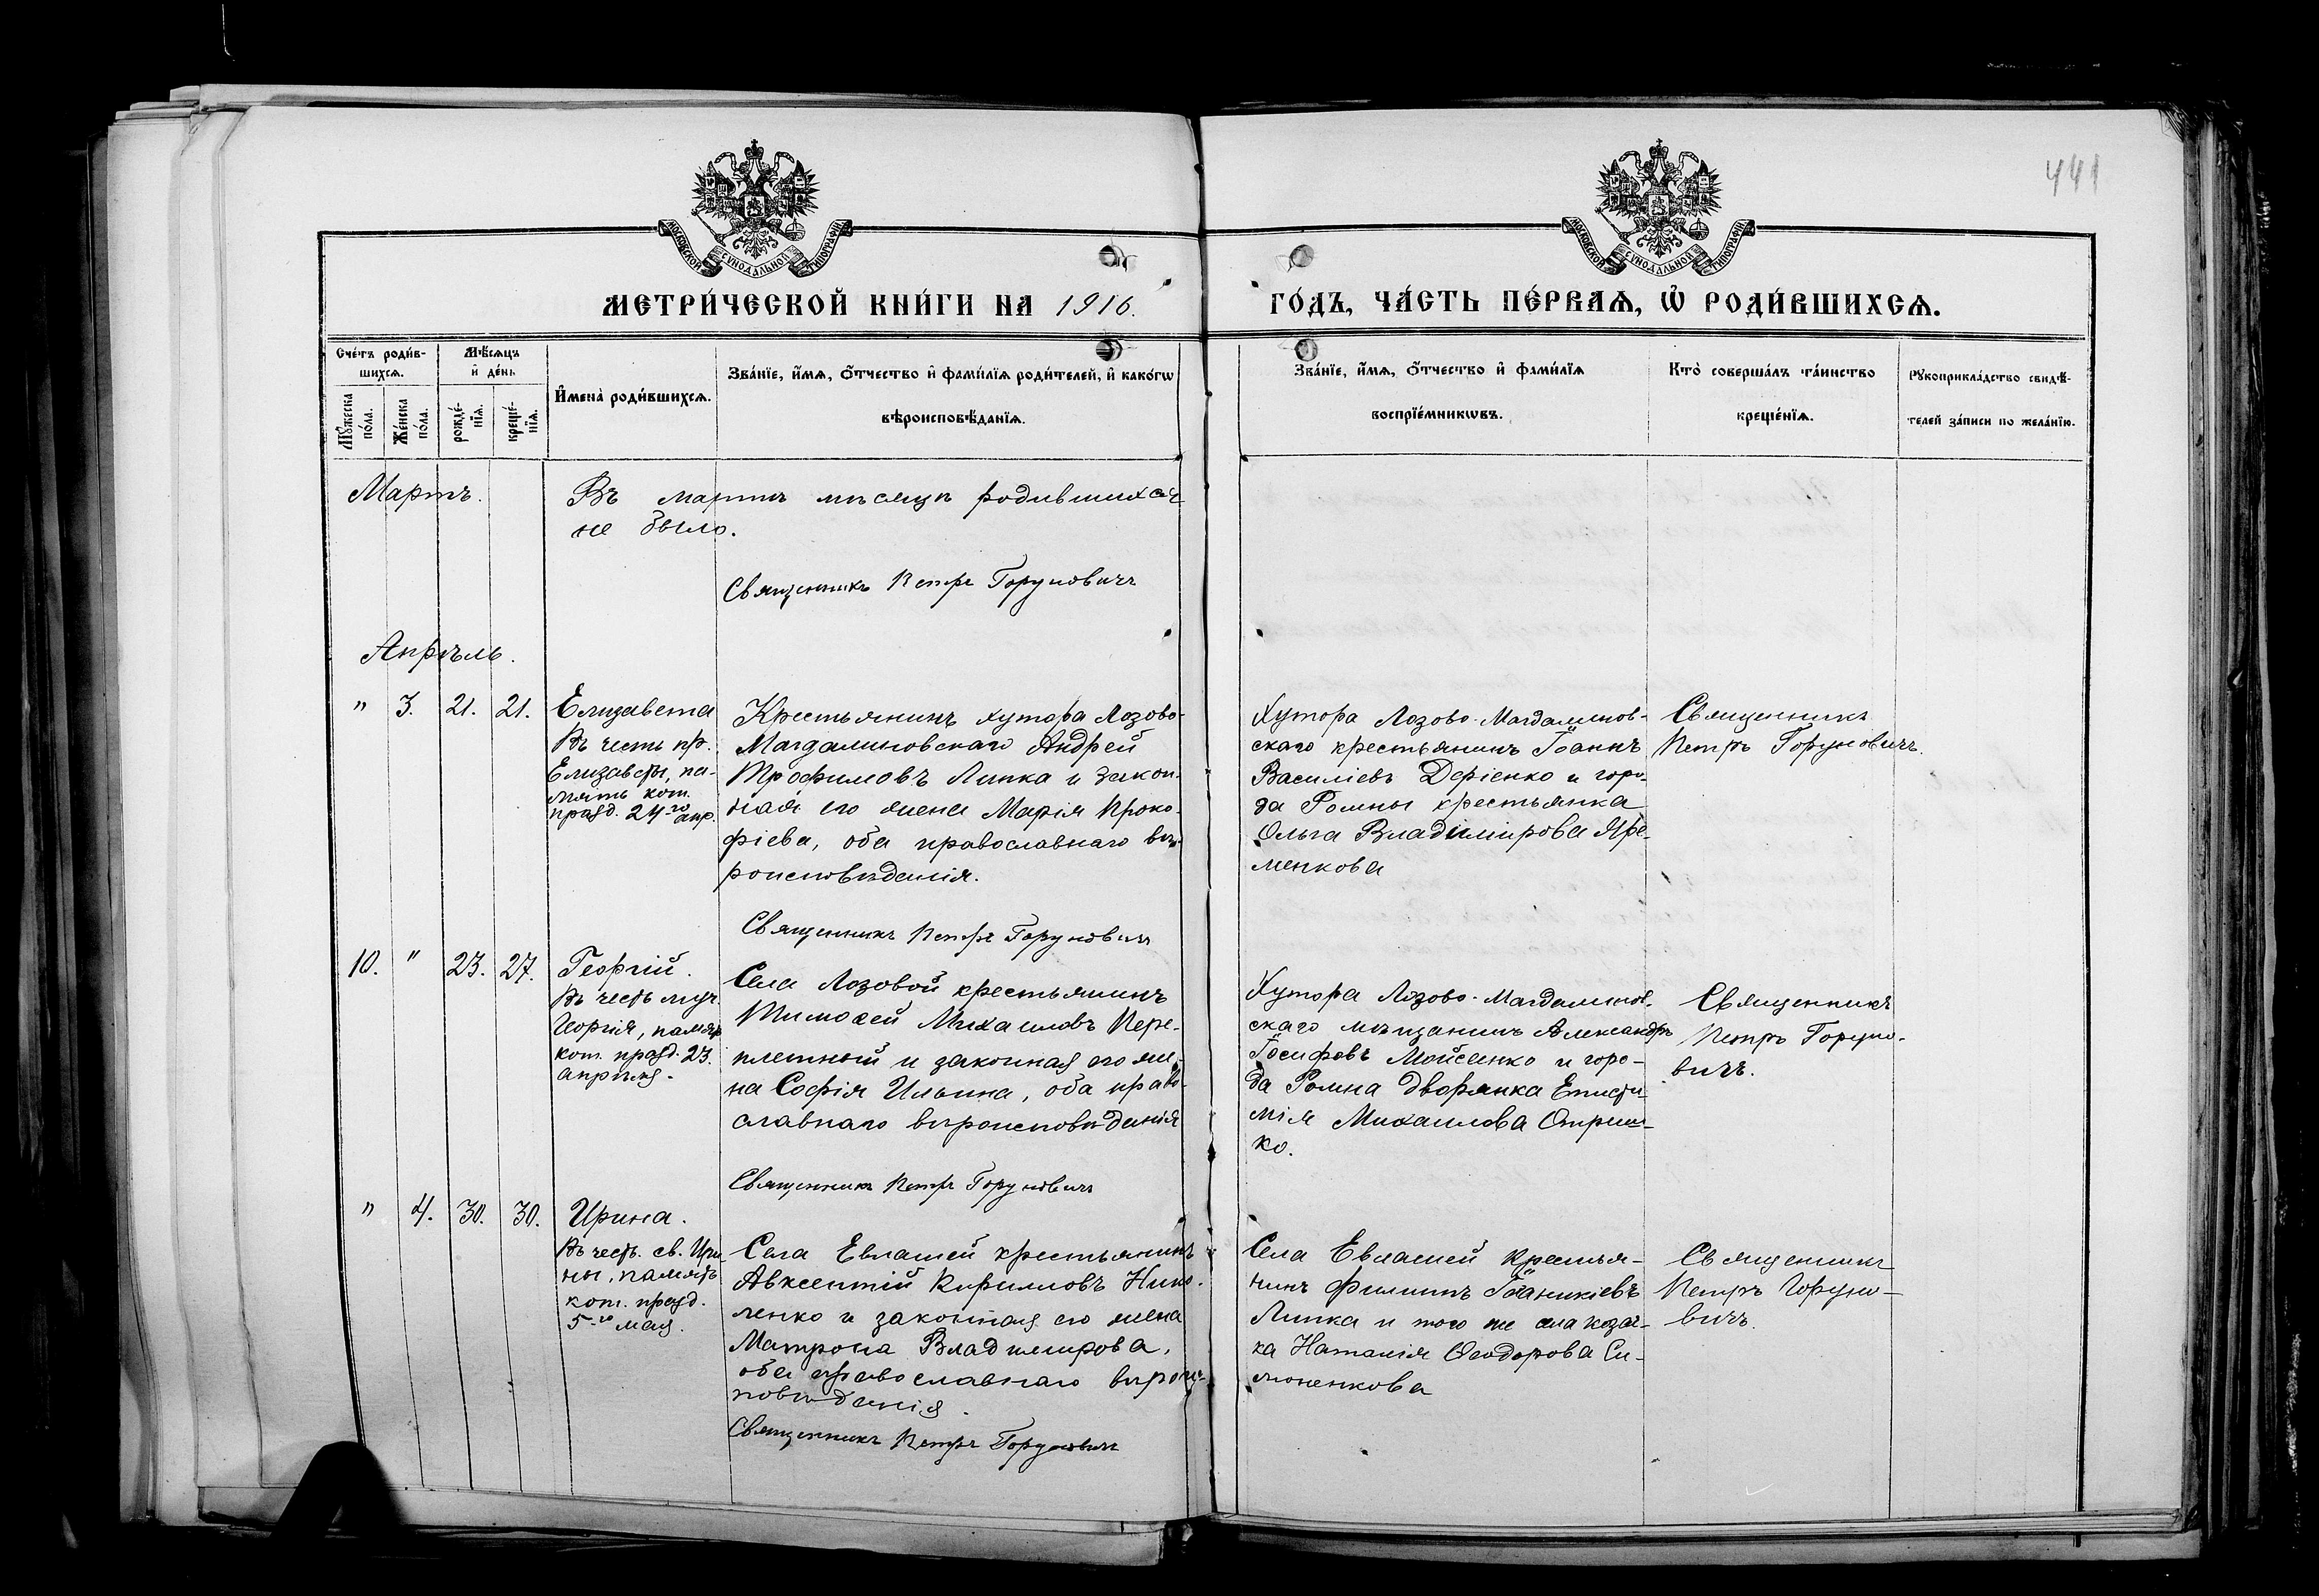 441
МОСКОВСКОЙ СѴНОДАЛЬНОЙ ТИПОГРАФІИ
МОСКОВСКОЙ СѴНОДАЛЬНОЙ ТИПОГРАФІИ
МЕТРИ́ЧЕСКОЙ КНИ́ГИ НА 1916.
ГО́ДЪ, ЧА́СТЬ ПЕ́РВАѦ, Ѡ҆ РОДИ́ВШИХСѦ.
Сче́тъ роди́в-
шихсѧ.
Мѣ́сѧцъ
и҆ де́нь
Мꙋ́жеска
по́ла.
Же́нска
по́ла.
рожде́-
нїѧ.
креще́-
нїѧ.
И҆мена̀ роди́вшихсѧ.
Зва́нїе, и҆́мѧ, ѻ҆́тчество и҆ фами́лїѧ роди́телей, и҆ како́гѡ
вѣроисповѣ́данїѧ.
Зва́нїе, и҆́мѧ, ѻ҆́тчество и҆ фами́лїѧ
воспрїе́мникѡвъ.
Кто̀ соверша́лъ та́инство
креще́нїѧ.
Рꙋкоприкла́дство свидѣ́-
телей за́писи по жела́нїю.
Мартъ.
Въ мартѣ мѣсяцѣ родившихся
не было.
Священникъ Петръ Горуновичъ
Апрѣль.
" 3. 21. 21.
Елизавета
Въ честь пр.
Елизаветы, па-
мять кот.
празд. 24-го апр.
Крестьянинъ хутора Лозово-
Магдалиновскаго Андрей
Трофимовъ Липка и закон-
ная его жена Марія Проко-
фіева, оба православнаго вѣ-
роисповѣданія.
Священникъ Петръ Горуновичъ
Хутора Лозово-Магдалинов-
скаго крестьянинъ Іоаннъ
Василіевъ Деріенко и горо-
да Ромны крестьянка
Ольга Владимірова Яре-
менкова
Священникъ
Петръ Горуновичъ.
10. " 23. 27.
Георгій.
Въ честь муч.
Георгія, память
кот. празд. 23.
апрѣля.
Села Лозовой крестьянинъ
Тимоѳей Михаиловъ Пере-
плетный и законная его же-
на Софія Ильина, оба право-
славнаго вѣроисповѣданія
Священникъ Петръ Горуновичъ
Хутора Лозово-Магдалинов-
скаго мѣщанинъ Александръ
Іосифовъ Мойсеенко и горо-
да Ромна дворянка Еписти-
мія Михаилова Опришко-
ко.
Священникъ
Петръ Горуно-
вичъ.
" 4. 30. 30.
Ирина.
Въ честь св. Ири-
ны, память
кот. празд.
5-го мая.
Села Евлашей крестьянинъ
Авксентій Кирилловъ Нико-
ленко и законная его жена
Матрона Владимирова,
оба православнаго вѣроис-
повѣданія.
Священникъ Петръ Горуновичъ
Села Евлашей крестья-
нинъ Филиппъ Іоаникіевъ
Липка и того же села козач-
ка Наталія Ѳеодорова Си-
моненкова
Священникъ
Петръ Горуно-
вичъ.